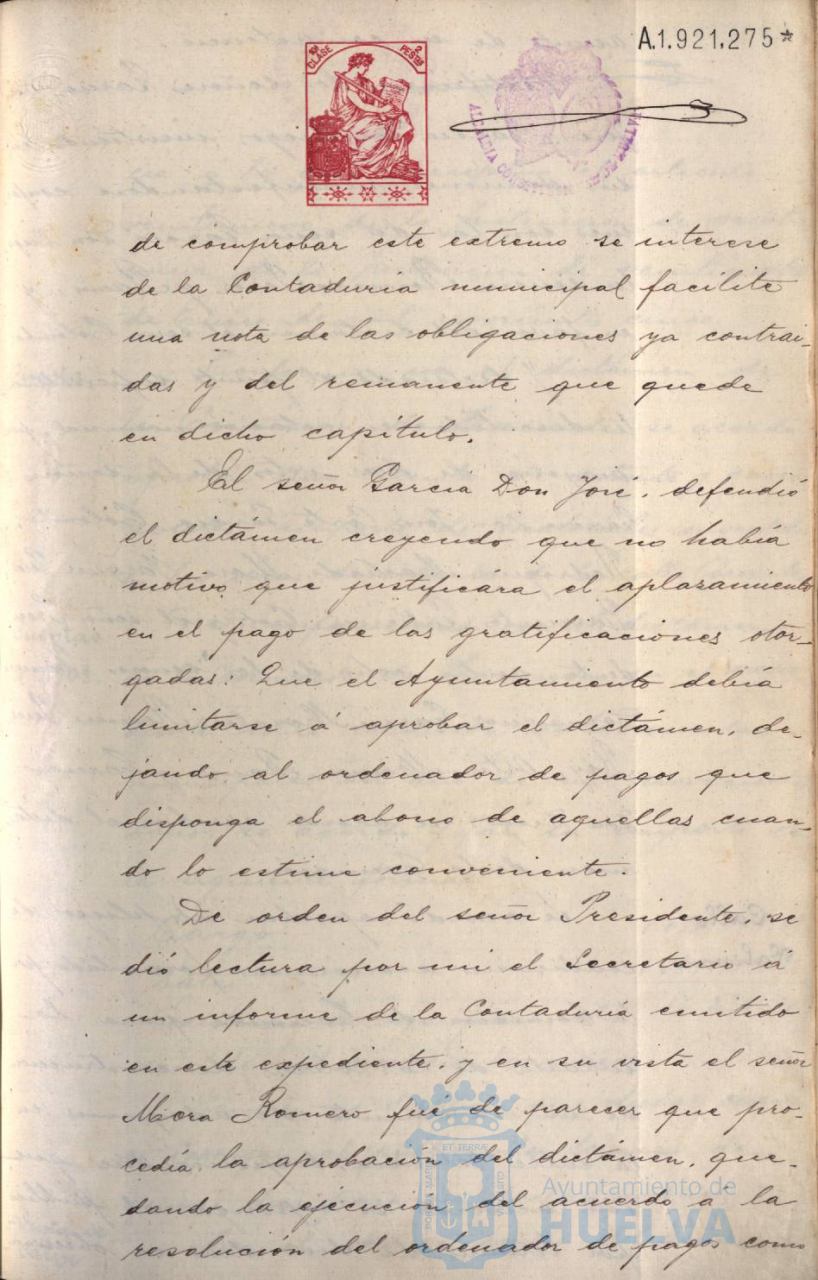 A.1.921.275*
10ª CLASE
2 PESTAS
ALCALDIA CONSTITUCIONAL DE HUELVA
de comprobar este extremo se interese
de la Contaduria municipal facilite
una nota de las obligaciones ya contrai-
das y del remanente que quede
en dicho capítulo.
El señor Garcia Don José, defendió
el dictámen creyendo que no había
motivo que justificára el aplazamiento
en el pago de las gratificaciones otor-
gadas: Que el Ayuntamiento debía
limitarse á aprobar el dictámen, de-
jando al ordenador de pagos que
disponga el abono de aquellas cuan-
do lo estime conveniente.
De orden del señor Presidente, se
dió lectura por mi el Secretario á
un informe de la Contaduría emitido
en este expediente, y en su vista el señor
Mora Romero fué de parecer que pro-
cedía la aprobación del dictámen, que-
dando la ejecución del acuerdo a la
resolución del ordenador de pagos como
Ayuntamiento de
HUELVA